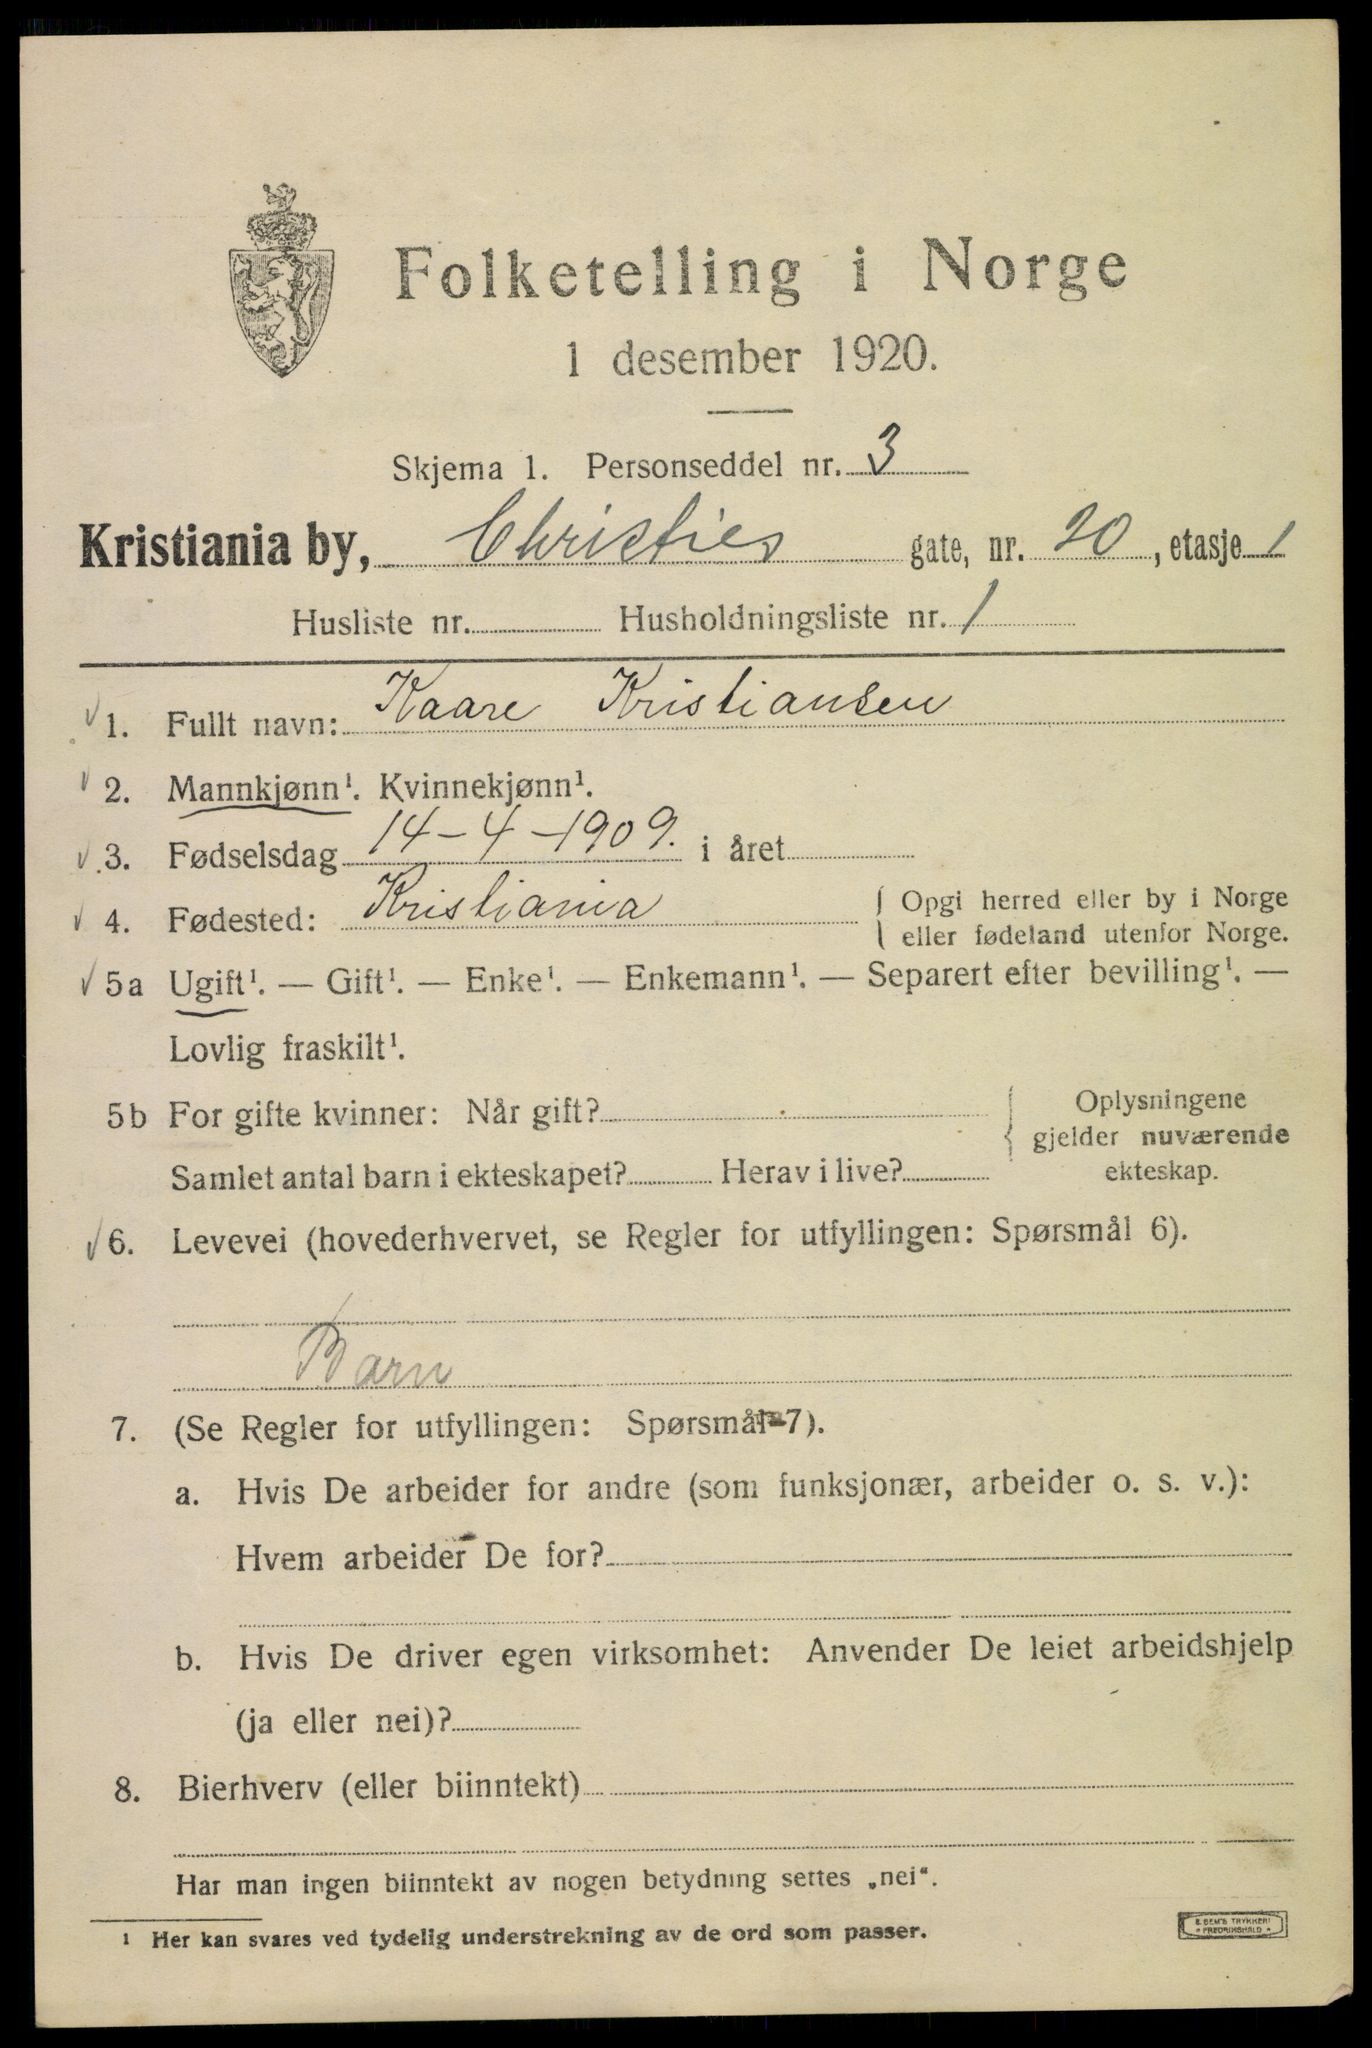 Folketelling i Norge
1 desember 1920.
Skjema 1. Personseddel nr. 3
Kristiania by, Christies gate, nr. 20, etasje 1
Husliste nr. Husholdningsliste nr. 1
1. Fullt navn: Kaare Kristiansen
2. Mannkjønn¹. Kvinnekjønn¹.
3. Fødselsdag 14-4-1909. i året
4. Fødested: Kristiania { Opgi herred eller by i Norge
eller fødeland utenfor Norge.
5a Ugift¹. — Gift¹. — Enke¹. — Enkemann¹. — Separert efter bevilling¹. —
Lovlig fraskilt¹.
5b For gifte kvinner: Når gift? { Oplysningene
gjelder nuværende
Samlet antal barn i ekteskapet? Herav i live? ekteskap.
6. Levevei (hovederhvervet, se Regler for utfyllingen: Spørsmål 6).
Barn
7. (Se Regler for utfyllingen: Spørsmål 7).
a. Hvis De arbeider for andre (som funksjonær, arbeider o. s. v.):
Hvem arbeider De for?
b. Hvis De driver egen virksomhet: Anvender De leiet arbeidshjelp
(ja eller nei)?
8. Bierhverv (eller biinntekt)
Har man ingen biinntekt av nogen betydning settes „nei“.
¹ Her kan svares ved tydelig understrekning av de ord som passer.
E. SEM'S TRYKKERI
FREDRIKSHALD